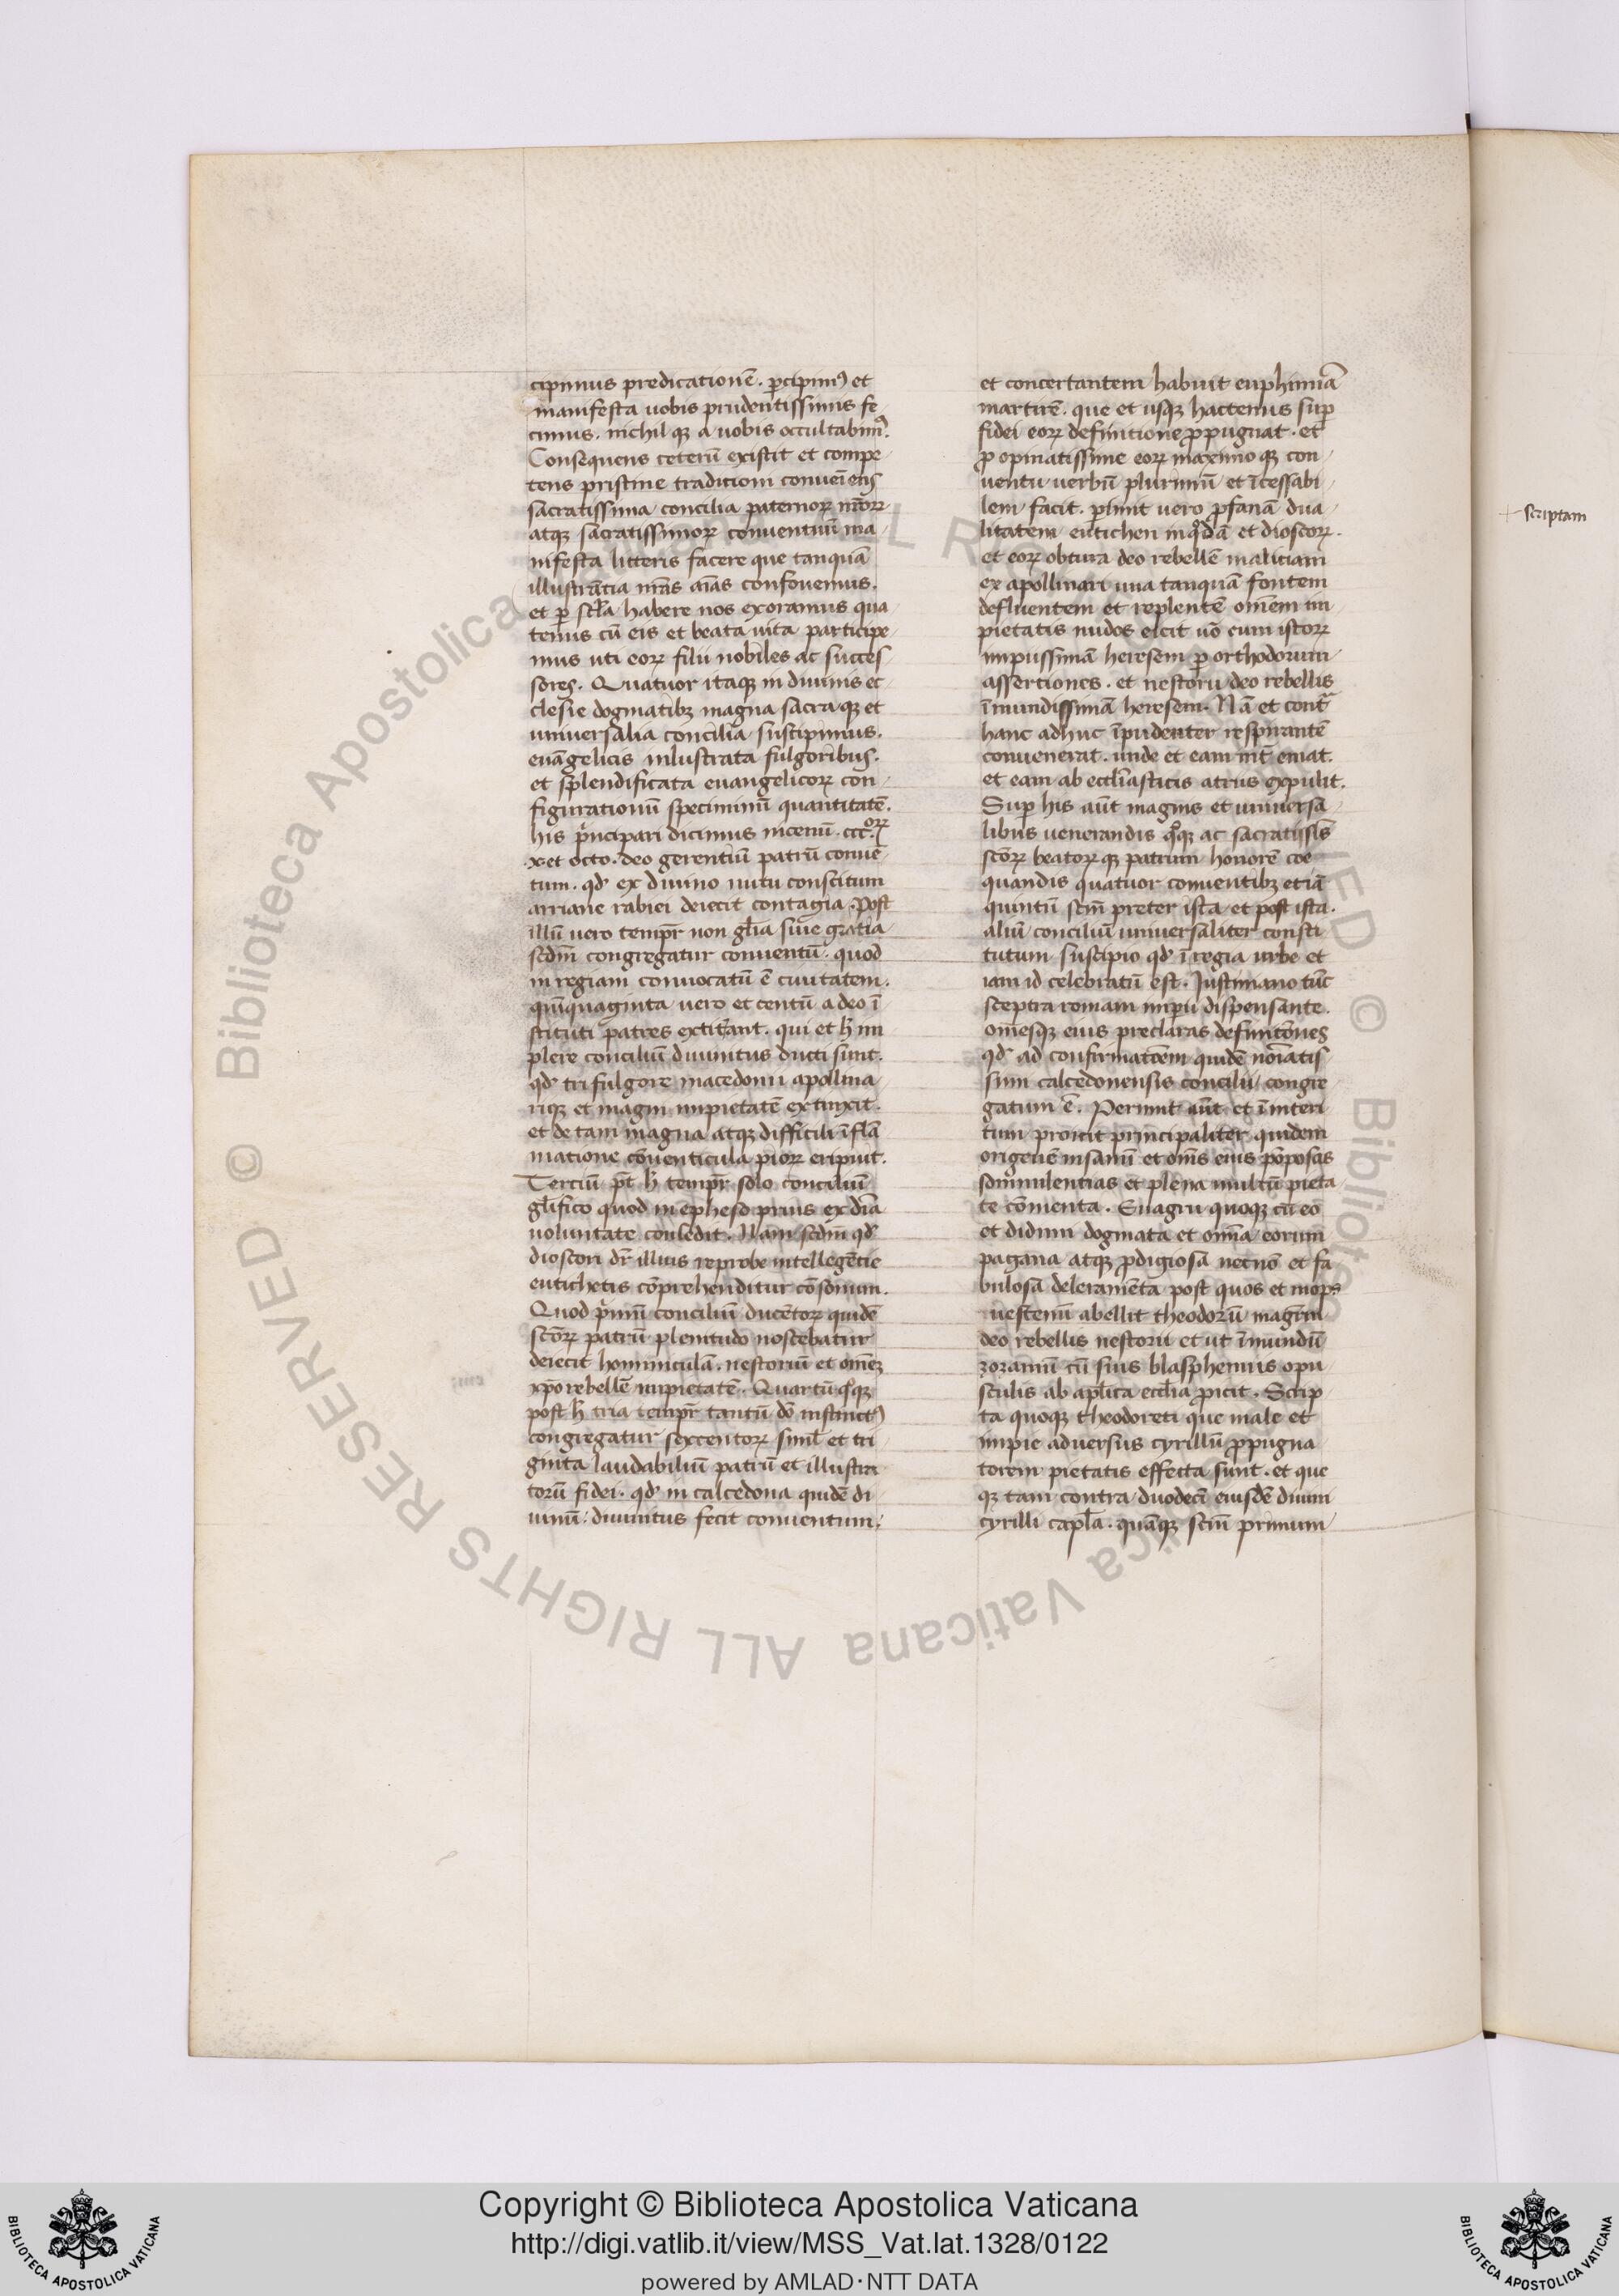 cipimus predicationē. ꝑcipimꝰ et
manifesta uobis prudentissimis fe
cimus. nichil qꝫ a uobis occultabimꝰ.
Consequens ceterū existit et compe
tens pristine tradicioni conueīens
sacratissima concilia paternoꝝ nr̄oꝝ
atqꝫ sacratissimoꝝ conuentuū ma
nifesta litteris facere que tanquā
illustrātia nr̄as aīas confouemus.
et ꝑ scl̄a habere nos exoramus qua
tenus cū eis et beata uita participe
mus uti eoꝝ filii nobiles ac succes
sores. Quatuor itaqꝫ in diuinis ec
clesie dogmatibꝫ magna sacra qꝫ et
uniuersalia concilia suscipimus.
euāgelicis inlustrata fulgoribus.
et splendificata euangelicoꝝ con
figurationū speciminū quantitatē.
his pͥncipari dicimus nicenū. ccc.oꝝ
.x. et octo. deo gerentiū patrū conue
tum. qd̓ ex diuino nutu conscitum
arriane rabiei deiecit contagia. Post
illū vero tempr̄ non gl̄ia siue gratia
scdm̄ congregatur conuentū. quod
in regiam conuocatū ē ciuitatem.
quīquaginta uero et centū a deo ī
stituti patres extiterant. qui et h̄ im
plere conciliū diuinitus ducti sunt.
qd̓ tri fulgore macedonii apollina
riqꝫ et magni impietatē extinxit.
et de tam magna atqꝫ difficili īfla
matione cōuenticula pioꝝ eripuit.
Terciū pt̄ h̄ tempr̄ solo conciliū
glīfico quod in epheso prius ex dīa
uoluntate consedit. Nam scdm̄ qd̓
dioscori dr̄ illius reprobe intellegētie
eutichetis cōprehenditur cōsonum.
Quod pͥmū conciliū ducētoꝝ quidē
scōꝝ patrū plenitudo noscebatur
deiecit hominiculā. nestoriū et omēꝫ
xp̄o rebellē impietatē. Quartū qͦqꝫ
post h̄ tria tempr̄ tantū dō instinctꝰ
congregatur sexcentoꝝ siml̄ et tri
ginta laudabiliū patrū et illustra
torū fidei. qd̓ in calcedona quidē di
uinū diuinitus fecit conuentum.
et concertantem habuit euphimiā
martirē. que et usqꝫ hactenus suꝑ
fidei eoꝝ definitione ꝓpugnat. et
ꝓ opinatissime eoꝝ maximo qꝫ con
uentu uerbū plurimū et īcessabi
lem facit. ꝑimit uero ꝓfanā dua
litatem eutichen inqͦdā et dioscoꝝ.
et eoꝝ obtura deo rebellē maliciam
ex apollinari una tanquā fontem
defluentem et replentē om̄em im
pietatis nudos eicit uō eum istoꝝ
impiissimā heresem ꝑ orthodorum
assertiones. et nestorii deo rebellis
īmundissimā heresem. Nā et contͣ
hanc adhuc īpudenter respirantē
conuenerat. unde et eam int̄ emat.
et eam ab eccl̄iasticis atriis expulit.
Suꝑ his aūt magnis et uniuersa
libus uenerandis qͦqꝫ ac sacratissīs
scōꝝ beatoꝝ qꝫ patrum honorē coe
quandis quatuor conuentibꝫ etiā
quintū scm̄ preter ista et post ista.
aliud conciliū uniuersaliter consti
tutum suscipio qd̓ ī regia urbe et
iam id celebratū est. Justiniano tūc
sceptra romam imꝑii dispensante.
omēsqꝫ eius preclaras definitōnes
qd̓ ad confirmatōem quidē noīatis
simi calcedonensis concilii congre
gatum ē. Perimit aūt et ī interi
tum proicit principaliter quidem
origenē insanū et om̄s eius pōposas
somnulentias et plena multū pieta
te cōmenta. Euagrii quoqꝫ cū eo
et didimi dogmata et om̄ia eorum
pagana atqꝫ ꝓdigiosa necnō et fa
bulosa deleramēta post quos et mops
uestenū abellit theodorū magr̄m
deo rebellis nestorii et ut īmundū
zozaniū cū suis blasphemiis opu
sculis ab apl̄ica eccl̄ia ꝓicit. Scrip
ta quoqꝫ theodoreti que male et
impie aduersus cyrillū ꝓpugna
torem pietatis effecta sunt. et que
qꝫ tam contra duodecī eiusdē diuini
cyrilli capl̄a. quāqꝫ scm̄ primum
scriptam
Copyright © Biblioteca Apostolica Vaticana
http://digi.vatlib.it/view/MSS_Vat.lat.1328/0122
powered by AMLAD·NTT DATA
BIBLIOTECA APOSTOLICA VATICANA
BIBLIOTECA APOSTOLICA VATICANA
© Biblioteca Apostolica Vaticana ALL RIGHTS RESERVED